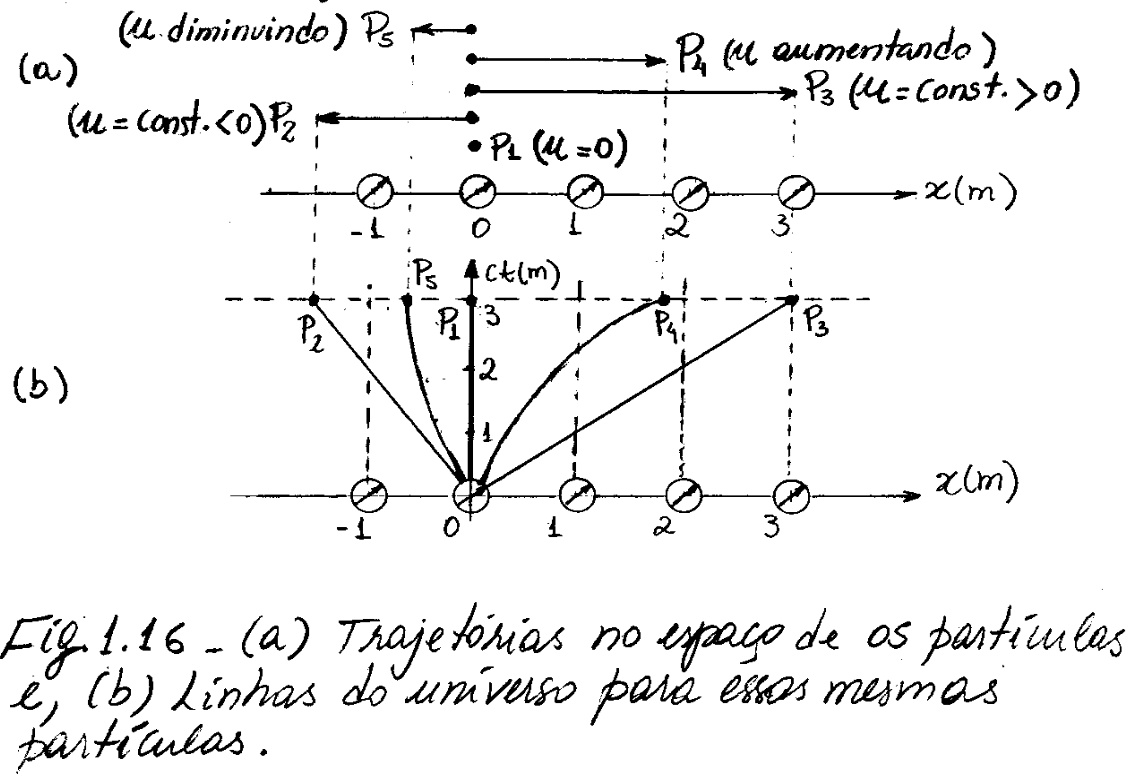 (u diminuindo) P5
(a)
P4 (u aumentando)
P3 (u=const.>0)
(u=const.<0) P2
P1 (u=0)
-1 0 1 2 3 x(m)
P5 ct(m)
P2 P1 3 P4 P3
(b)
2
1
-1 0 1 2 3 x(m)
Fig. 1.16 - (a) Trajetórias no espaço de os partículas
e, (b) Linhas do universo para essas mesmas
partículas.